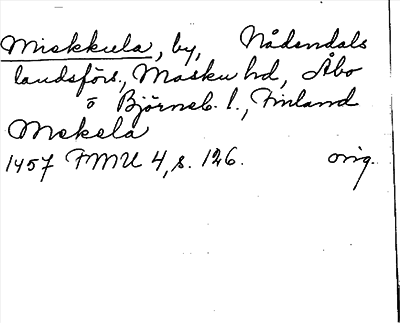 Miskkula, by, Nådendals
landsförs., Masku hd, Åbo
o Björneb. l., Finland
Mskala
1457 FMU 4, s. 126. orig.